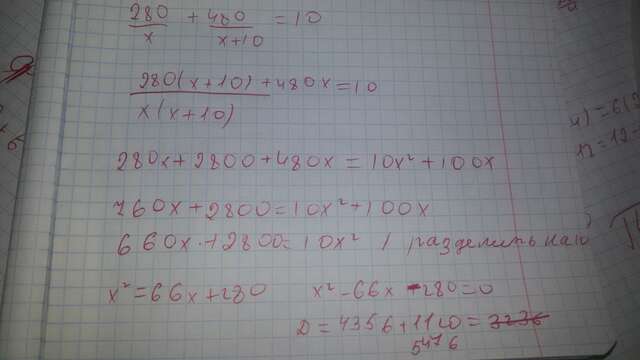 280/x + 480/(x+10) = 10
(280(x+10)+480x)/(x(x+10)) = 10
280x+2800+480x = 10x²+100x
760x+2800=10x²+100x
660x+2800=10x² / разделить на 10
x²=66x+280 x²-66x-280=0
D=4356+1120=3236
5476